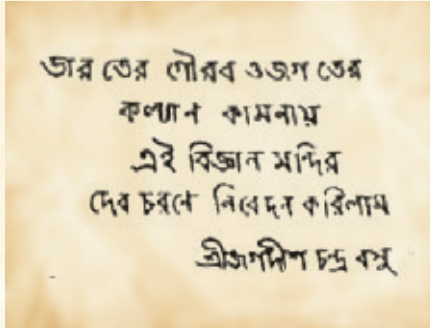 ভারতের গৌরব ও জগতের
কল্যাণ কামনায়
এই বিজ্ঞান মন্দির
দেব চরণে নিবেদন করিলাম
শ্রীজগদীশ চন্দ্র বসু